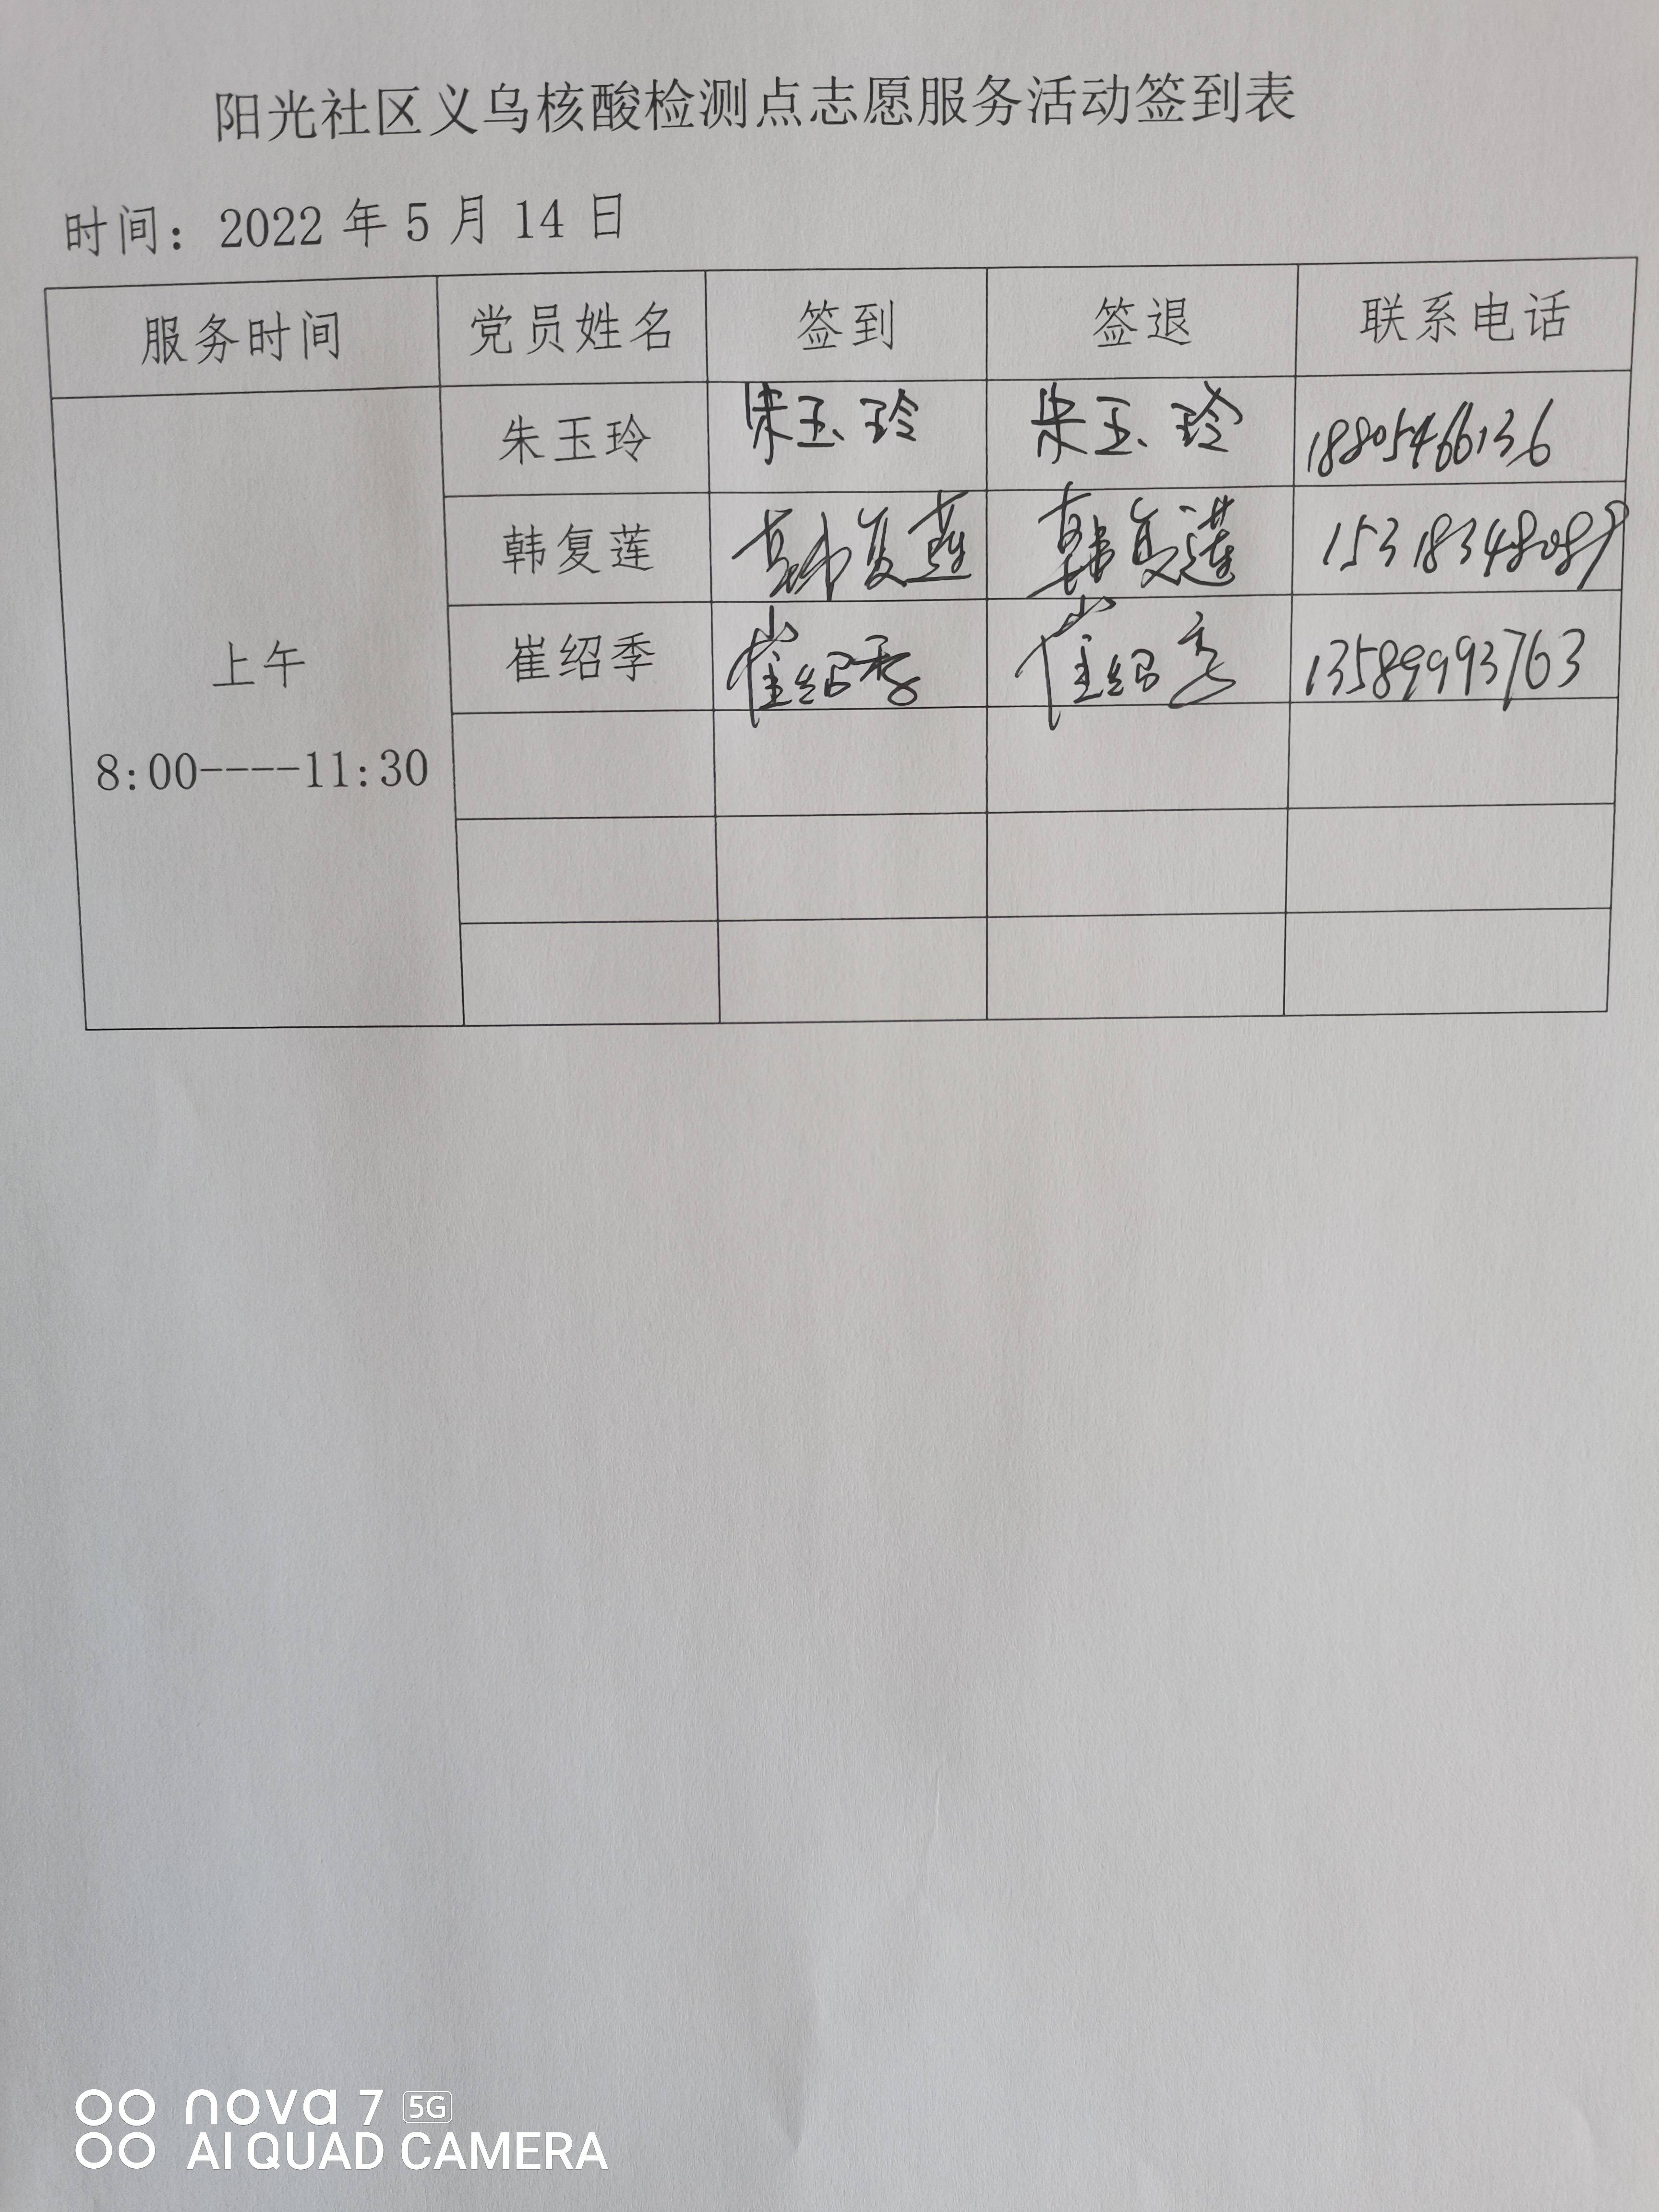 阳光社区义乌核酸检测点志愿服务活动签到表
时间：2022 年 5 月 14 日
服务时间 党员姓名 签到 签退 联系电话
朱玉玲 朱玉玲 朱玉玲 18805466136
韩复莲 韩复莲 韩复莲 15318348089
上午 崔绍季 崔绍季 崔绍季 13589993763
8:00----11:30
nova 7 5G
AI QUAD CAMERA